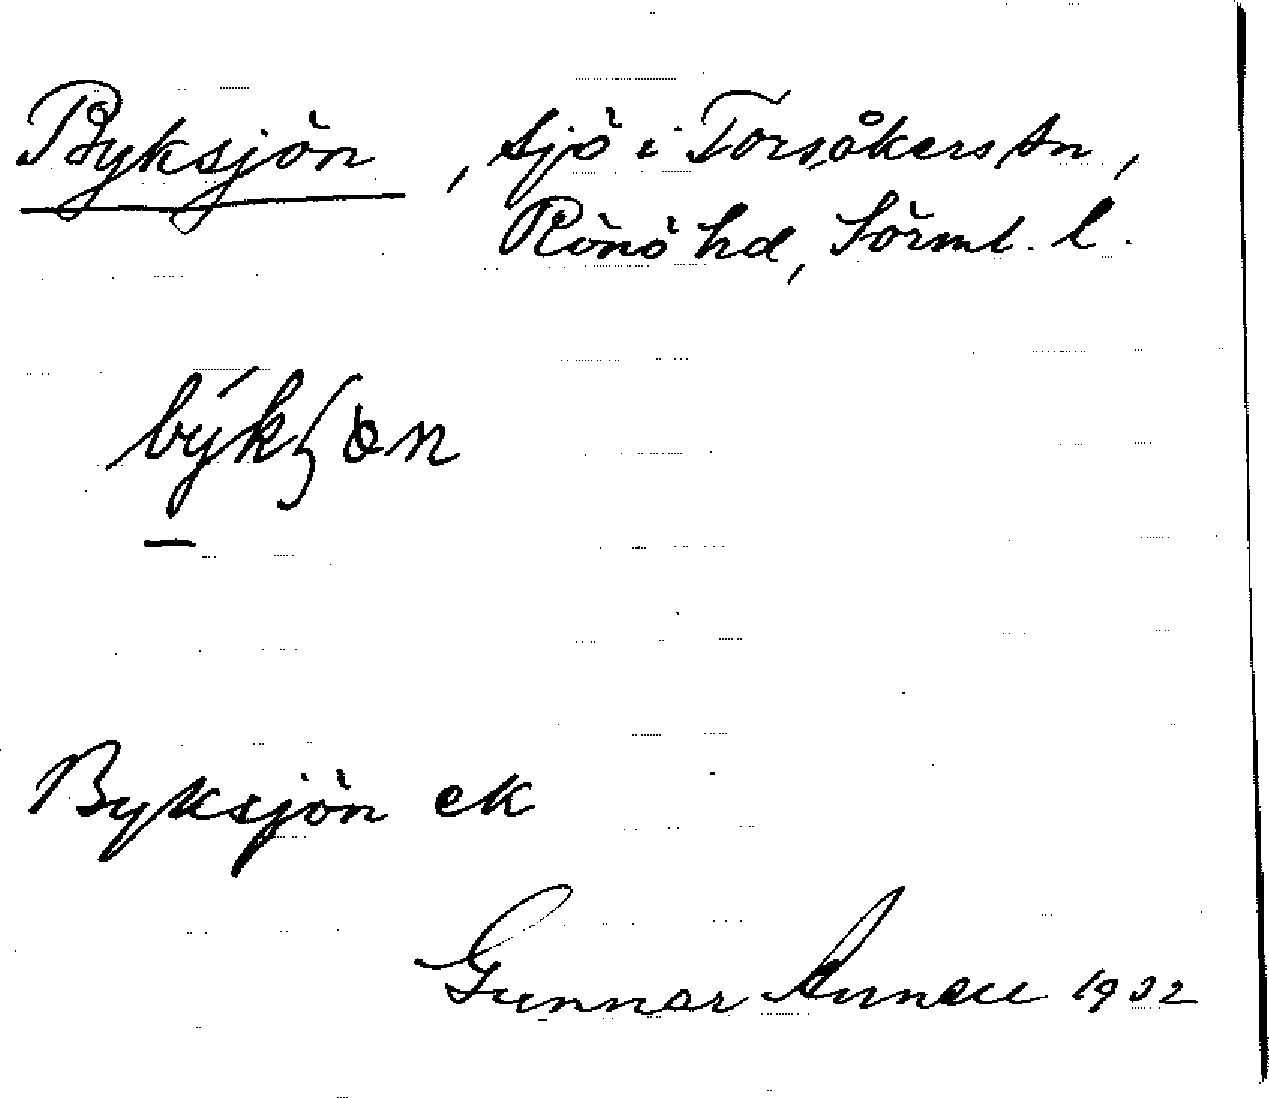 Byksjön, sjö i Torsåkers sn,
Rönö hd, Sörml. l.
Byksjön ek
Gunnar 1932